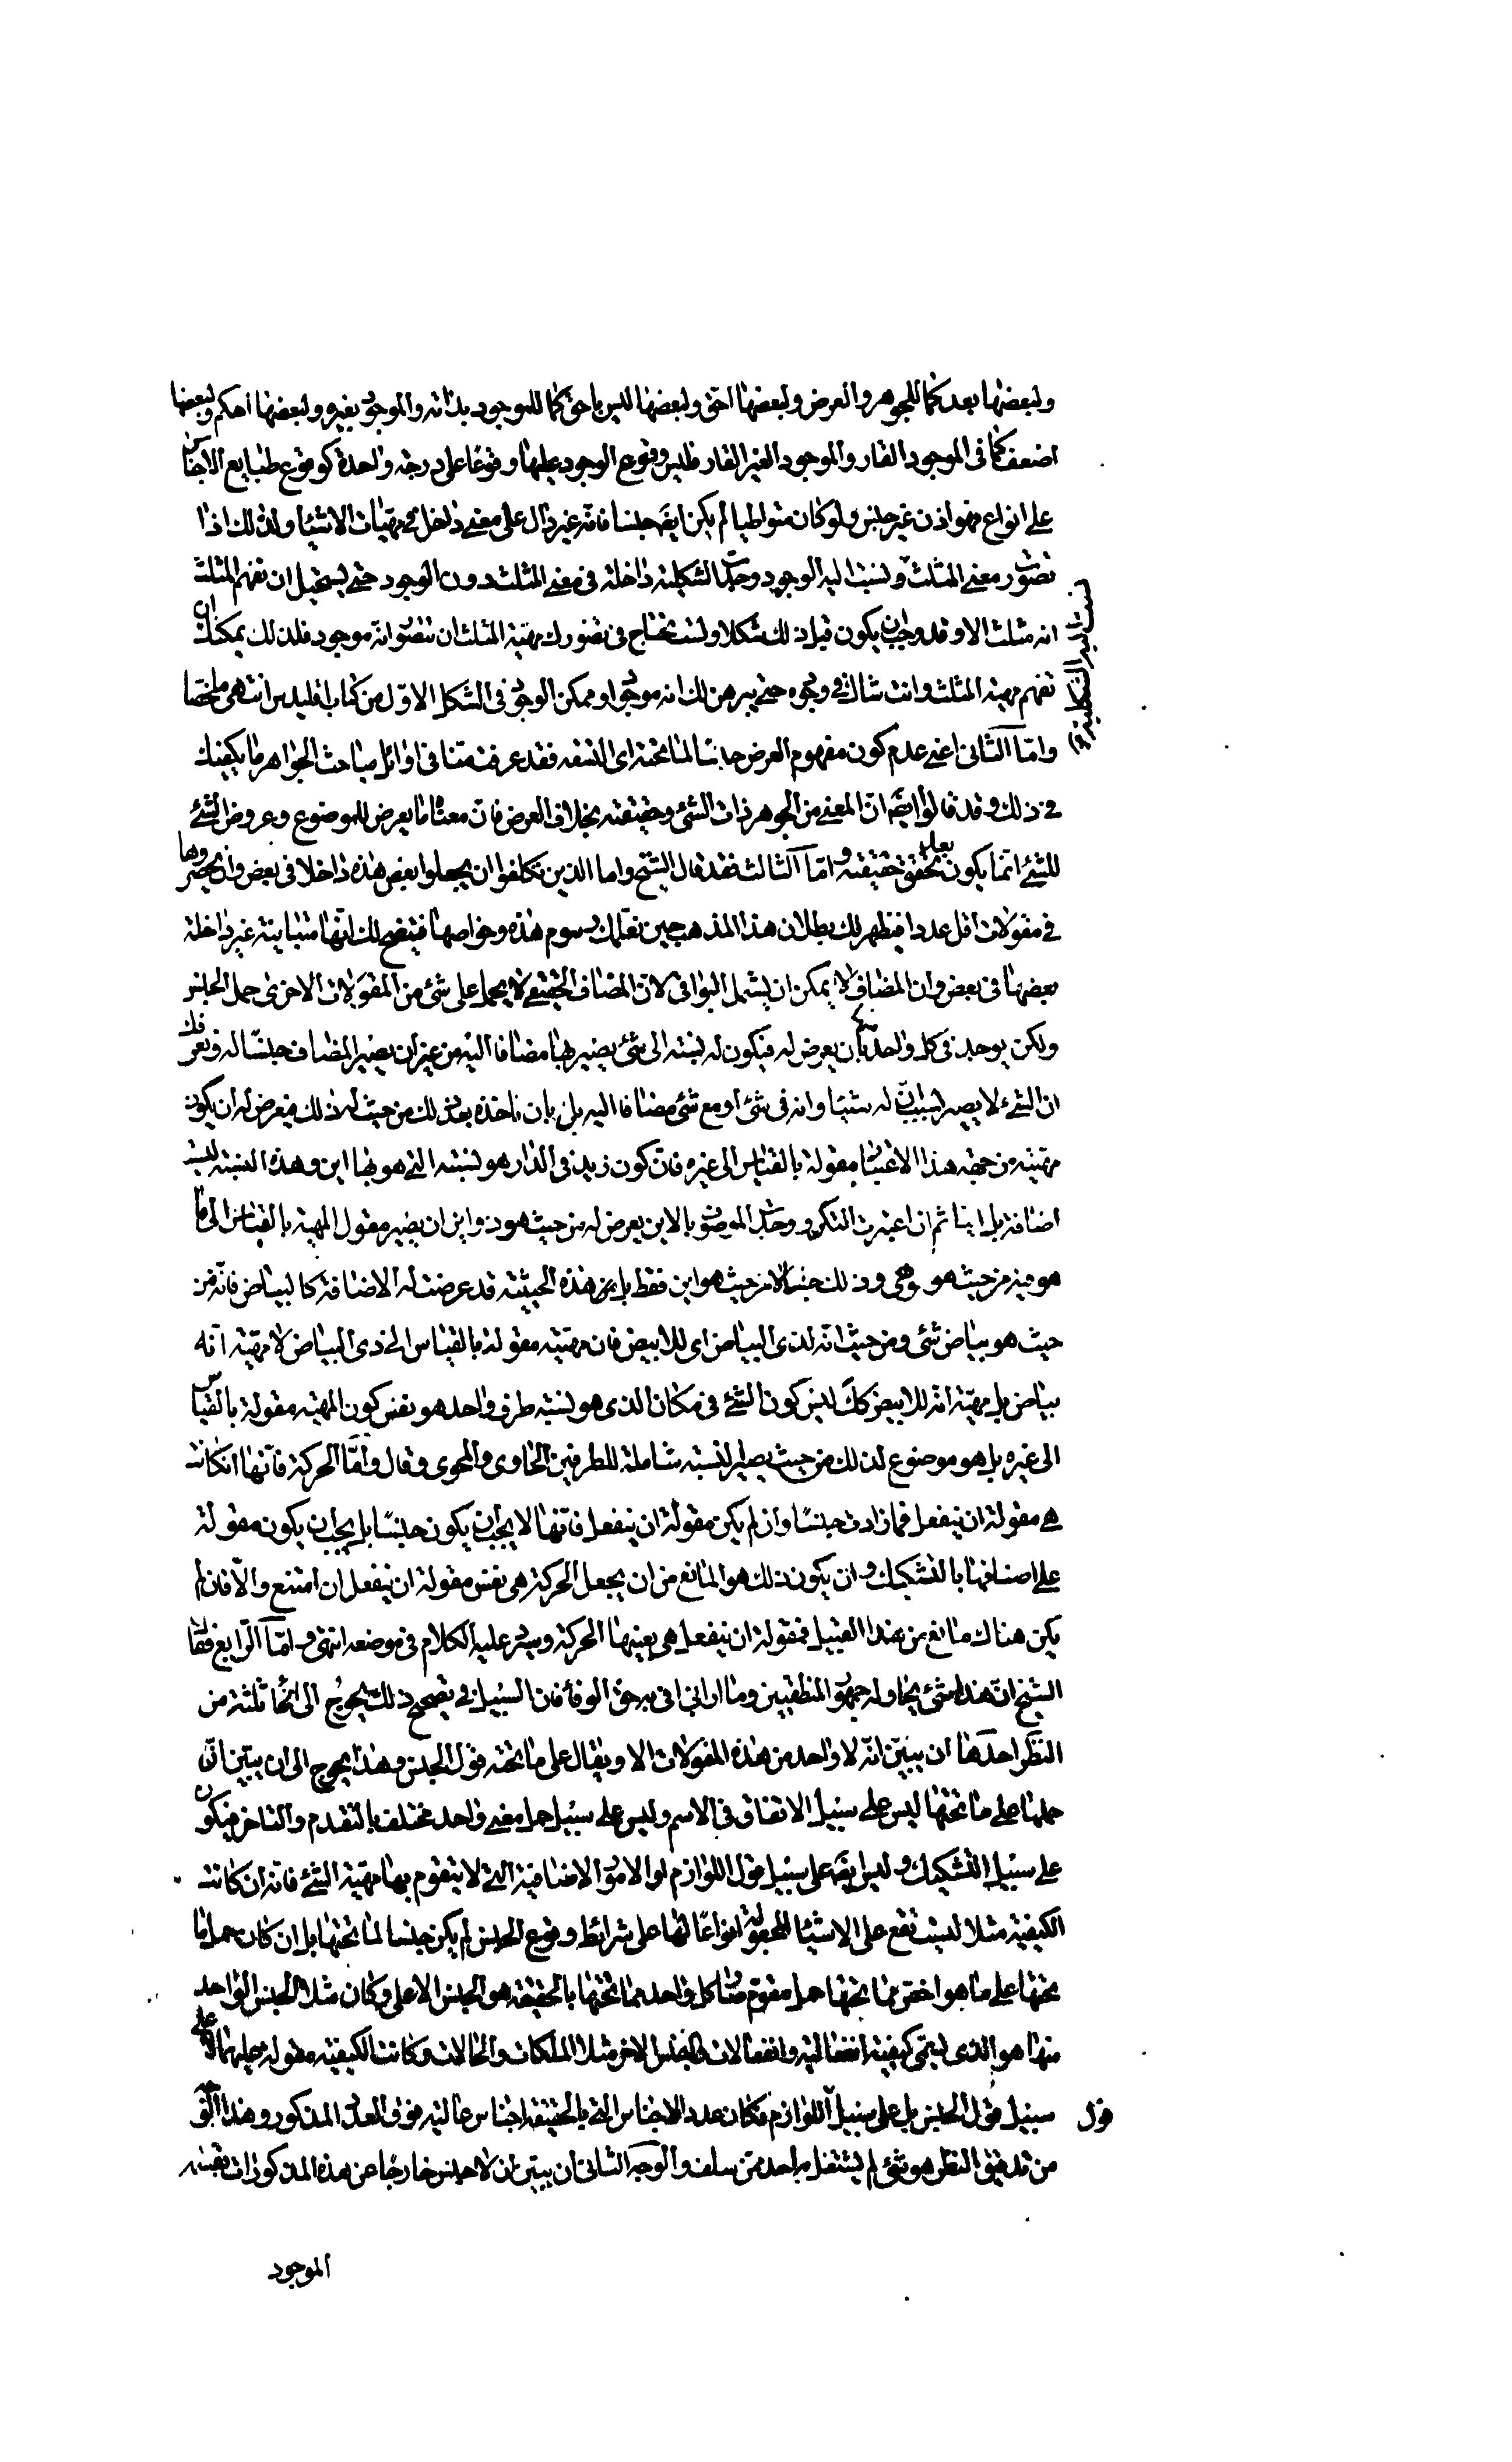 ولبعضها بعد كما للجوهر والعرض ولبعضها احق ولبعضها ليس باحق كما للموجود بذاته والموجود بغيره ولبعضها احكم ولبعضها
اضعف كما فى الموجود القار والموجود الغير القار فليس وقوع الوجود عليها وقوعًا على درجة واحدة كوقوع طبايع الاجناس
على انواع فهو اذن غير جنس ولو كان متواطيا لم يكن ايضً جنسا فانه غير دال على معنى داخل فى مهيات الاشياء ولذلك اذا
تصورت معنى المثلث ونسبت اليه الوجود وجدت الشكلية داخلة فى معنى المثلث دون الوجود حتى يستحيل ان تفهم المثلث
انه مثلث الا وقد وجب ان يكون قبل ذلك شكلا ولست تحتاج فى تصورك مهية المثلث ان تتصور انه موجود فلذلك يمكنك ان
تفهم مهية المثلث وانت شاك فى وجوده حتى يبرهن لك انه موجود او ممكن الوجود فى الشكل الاول من كتاب اقليدس انتهى ملخصا
واما الثانى اعنى عدم كون مفهوم العرض جنسا لما تحته اى التسعة فقد عرفت منا فى اوائل مباحث الجواهر ما يكفيك
فى ذلك وقد قالوا ايضً ان المعنى من الجوهر ذات الشئ وحقيقته بخلاف العرض فان معناه ما يعرض للموضوع وعروض الشئ
للشئ انما يكون بعد تحقق حقيقته واما الثالث فقد قال الشيخ واما الذين تكلفوا ان يجعلوا بعض هذه داخلا فى بعض وان يحصروها
فى مقولات اقل عددا فيظهر لك بطلان هذا المذهب حين نعلمك رسوم هذه وخواصها فيتضح لك انها متباينة غير داخلة
بعضها فى بعض وان المضاف لا يمكن ان يشمل البواقى لان المضاف الحقيقى لا يحمل على شئ من المقولات الاخرى حمل الجنس
ولكن يوجد فى كل واحد منها بان يعرض له فيكون له نسبة الى شئ يصير بها مضافا اليه من غير ان يصير المضاف جنسًا له ونعرفك
ان الشئ لا يصير بسبب ان له شيئا وانه فى شئ او مع شئ مضافا اليه بل بان ناخذه بعد ذلك من حيث له ذلك فيعرض له ان يكون
مهيته من جهة هذا الاعتبار مقولة بالقياس الى غيره فان كون زيد فى الدار هو نسبته التى هو بها اين وهذه النسبة ليست
اضافة بل اينا ثم ان اعتبرت التكرير وجدت الموصوف بالاين يعرض له من حيث هو ذو اين ان يصير مقول المهية بالقياس الى ما
هو فيه من حيث هو وذلك لا من حيث هو اين فقط بل من هذه الحيثية قد عرضت له الاضافة كالبياض فانه من
حيث هو بياض شئ ومن حيث انه لذى البياض اى للابيض فان مهيته مقولة بالقياس الى ذى البياض لا مهية انه
بياض بل مهية انه للابيض كك ليس كون الشئ فى مكان الذى هو نسبة طرف واحد هو نفس كون المهية مقولة بالقياس
الى غيره بل هو موضوع لذلك من حيث يصير لنسبة شاملة للطرفين الحاوى والمحوى وقال واما الحركة فانها ان كانت
هى مقولة ان ينفعل فما زادت جنسًا وان لم يكن مقولة ان ينفعل فانها لا يجب ان يكون جنسًا بل يجب ان يكون مقولة
على اصنافها بالتشكيك وان يكون ذلك هو المانع من ان يجعل الحركة هى نفس مقولة ان ينفعل ان امتنع والا فان لم
يكن هناك مانع من هذا القبيل فمقولة ان ينفعل هى بعينها الحركة وسير عليه الكلام فى موضعه انتهى واما الرابع فقال
الشيخ ان هذا شئ يحاوله جمهور المنطقيين وما ارانى افى به حق الوفاء فان السبيل فى تصحيح ذلك يحوج الى انحاء ثلثة من
النظر احدها ان يبين انه لا واحد من هذه المقولات الا ويقال على ما تحته قول الجنس وهذا يحوج الى ان يبين ان
حملها على ما تحتها ليس على سبيل الاتفاق فى الاسم وليس على سبيل حمل معنى واحد مختلف بالتقدم والتاخر فيكون
على سبيل التشكيك وليس ايضً على سبيل قول اللوازم والامور الاضافية التى لا يتقوم بها مهية الشئ فانه ان كانت
الكيفية مثلا ليست تقع على الاشياء المجعولة انواعًا لها على شرائط وقوع الجنس لم يكن جنسا لما تحتها بل ان كان حمل ما
تحتها على ما هو اخص مما تحتها حمل مقوم كل واحد مما تحتها بالحقيقة هو الجنس الاعلى وكان مثلا الجنس الواحد
منها هو الذى يسمى كيفية انفعالية وانفعالات والجنس الاخر مثلا الملكات والحالات وكانت الكيفية مقولة عليها لا على
سبيل قول الجنس بل على سبيل قول اللوازم فكان عدد الاجناس التى بالحقيقة اجناس عالية فوق العدد المذكور وهذا الوجه
من تدقيق النظر هو شئ لم يشتغل به احد ممن سلف والوجه الثانى ان يبين ان لا جنس خارجًا عن هذه المذكورات بقسمة
الموجود